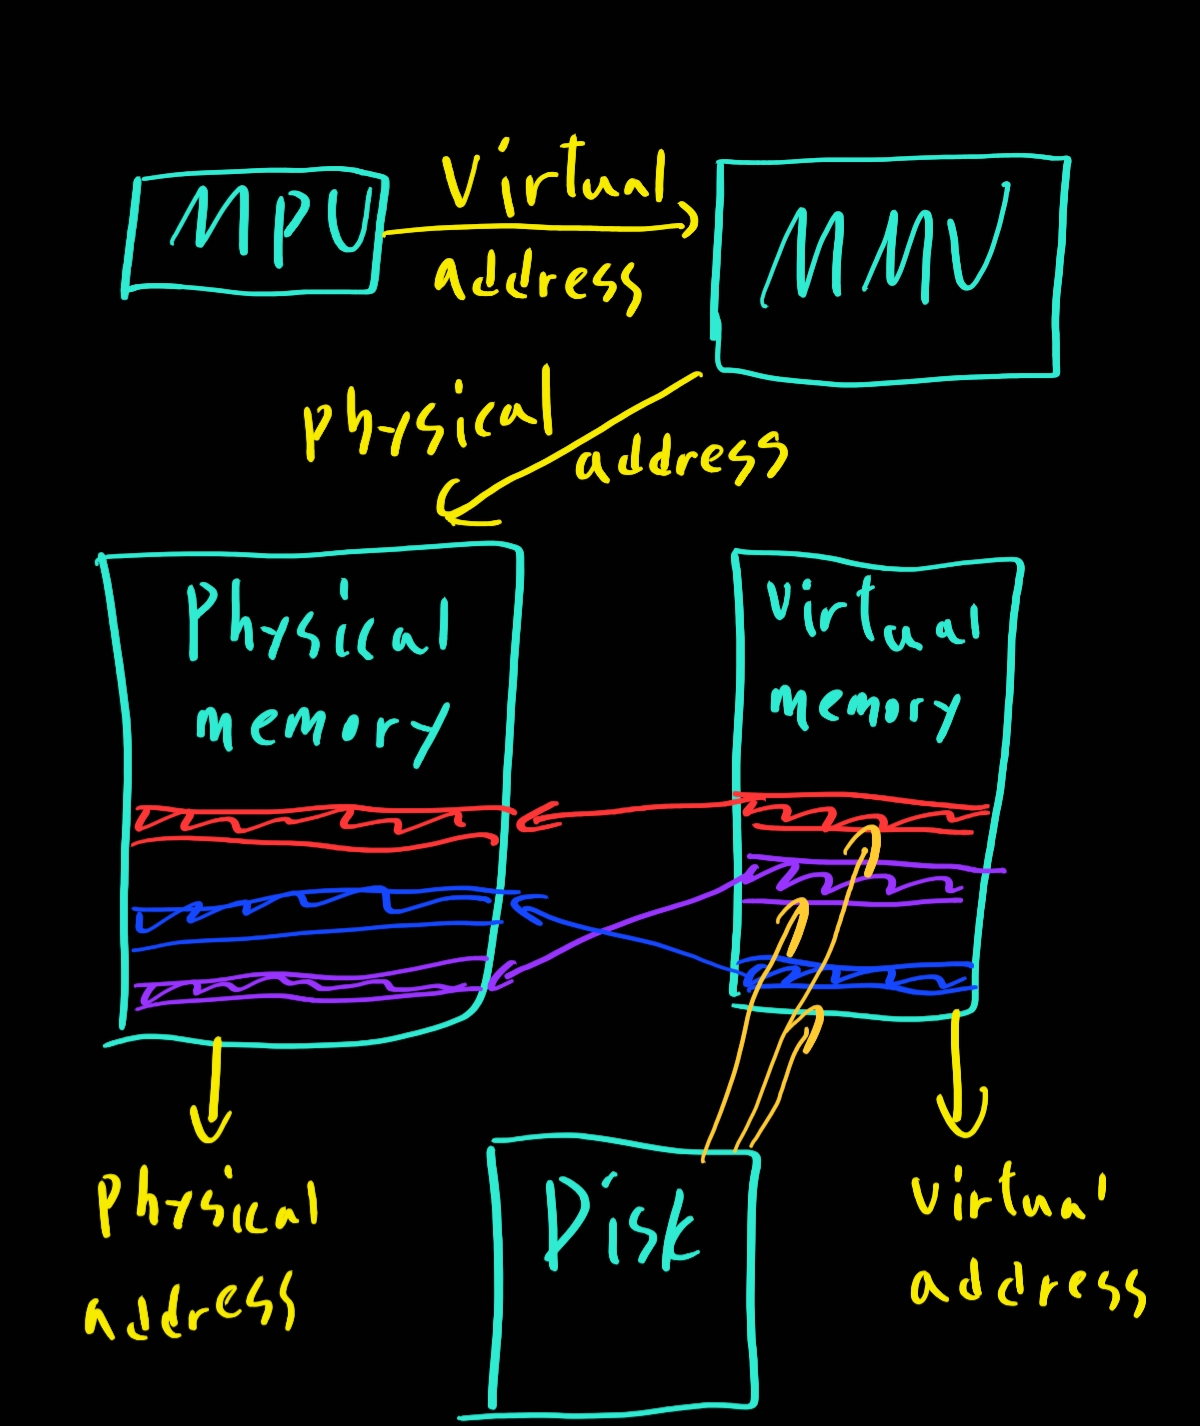 Virtual
MPU
MMU
address
physical
address
Physical
memory
virtual
memory
Physical
address
Disk
virtual
address